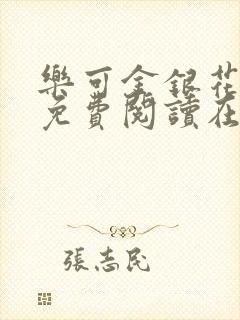 樂可金銀花
免費閱讀在
張志民